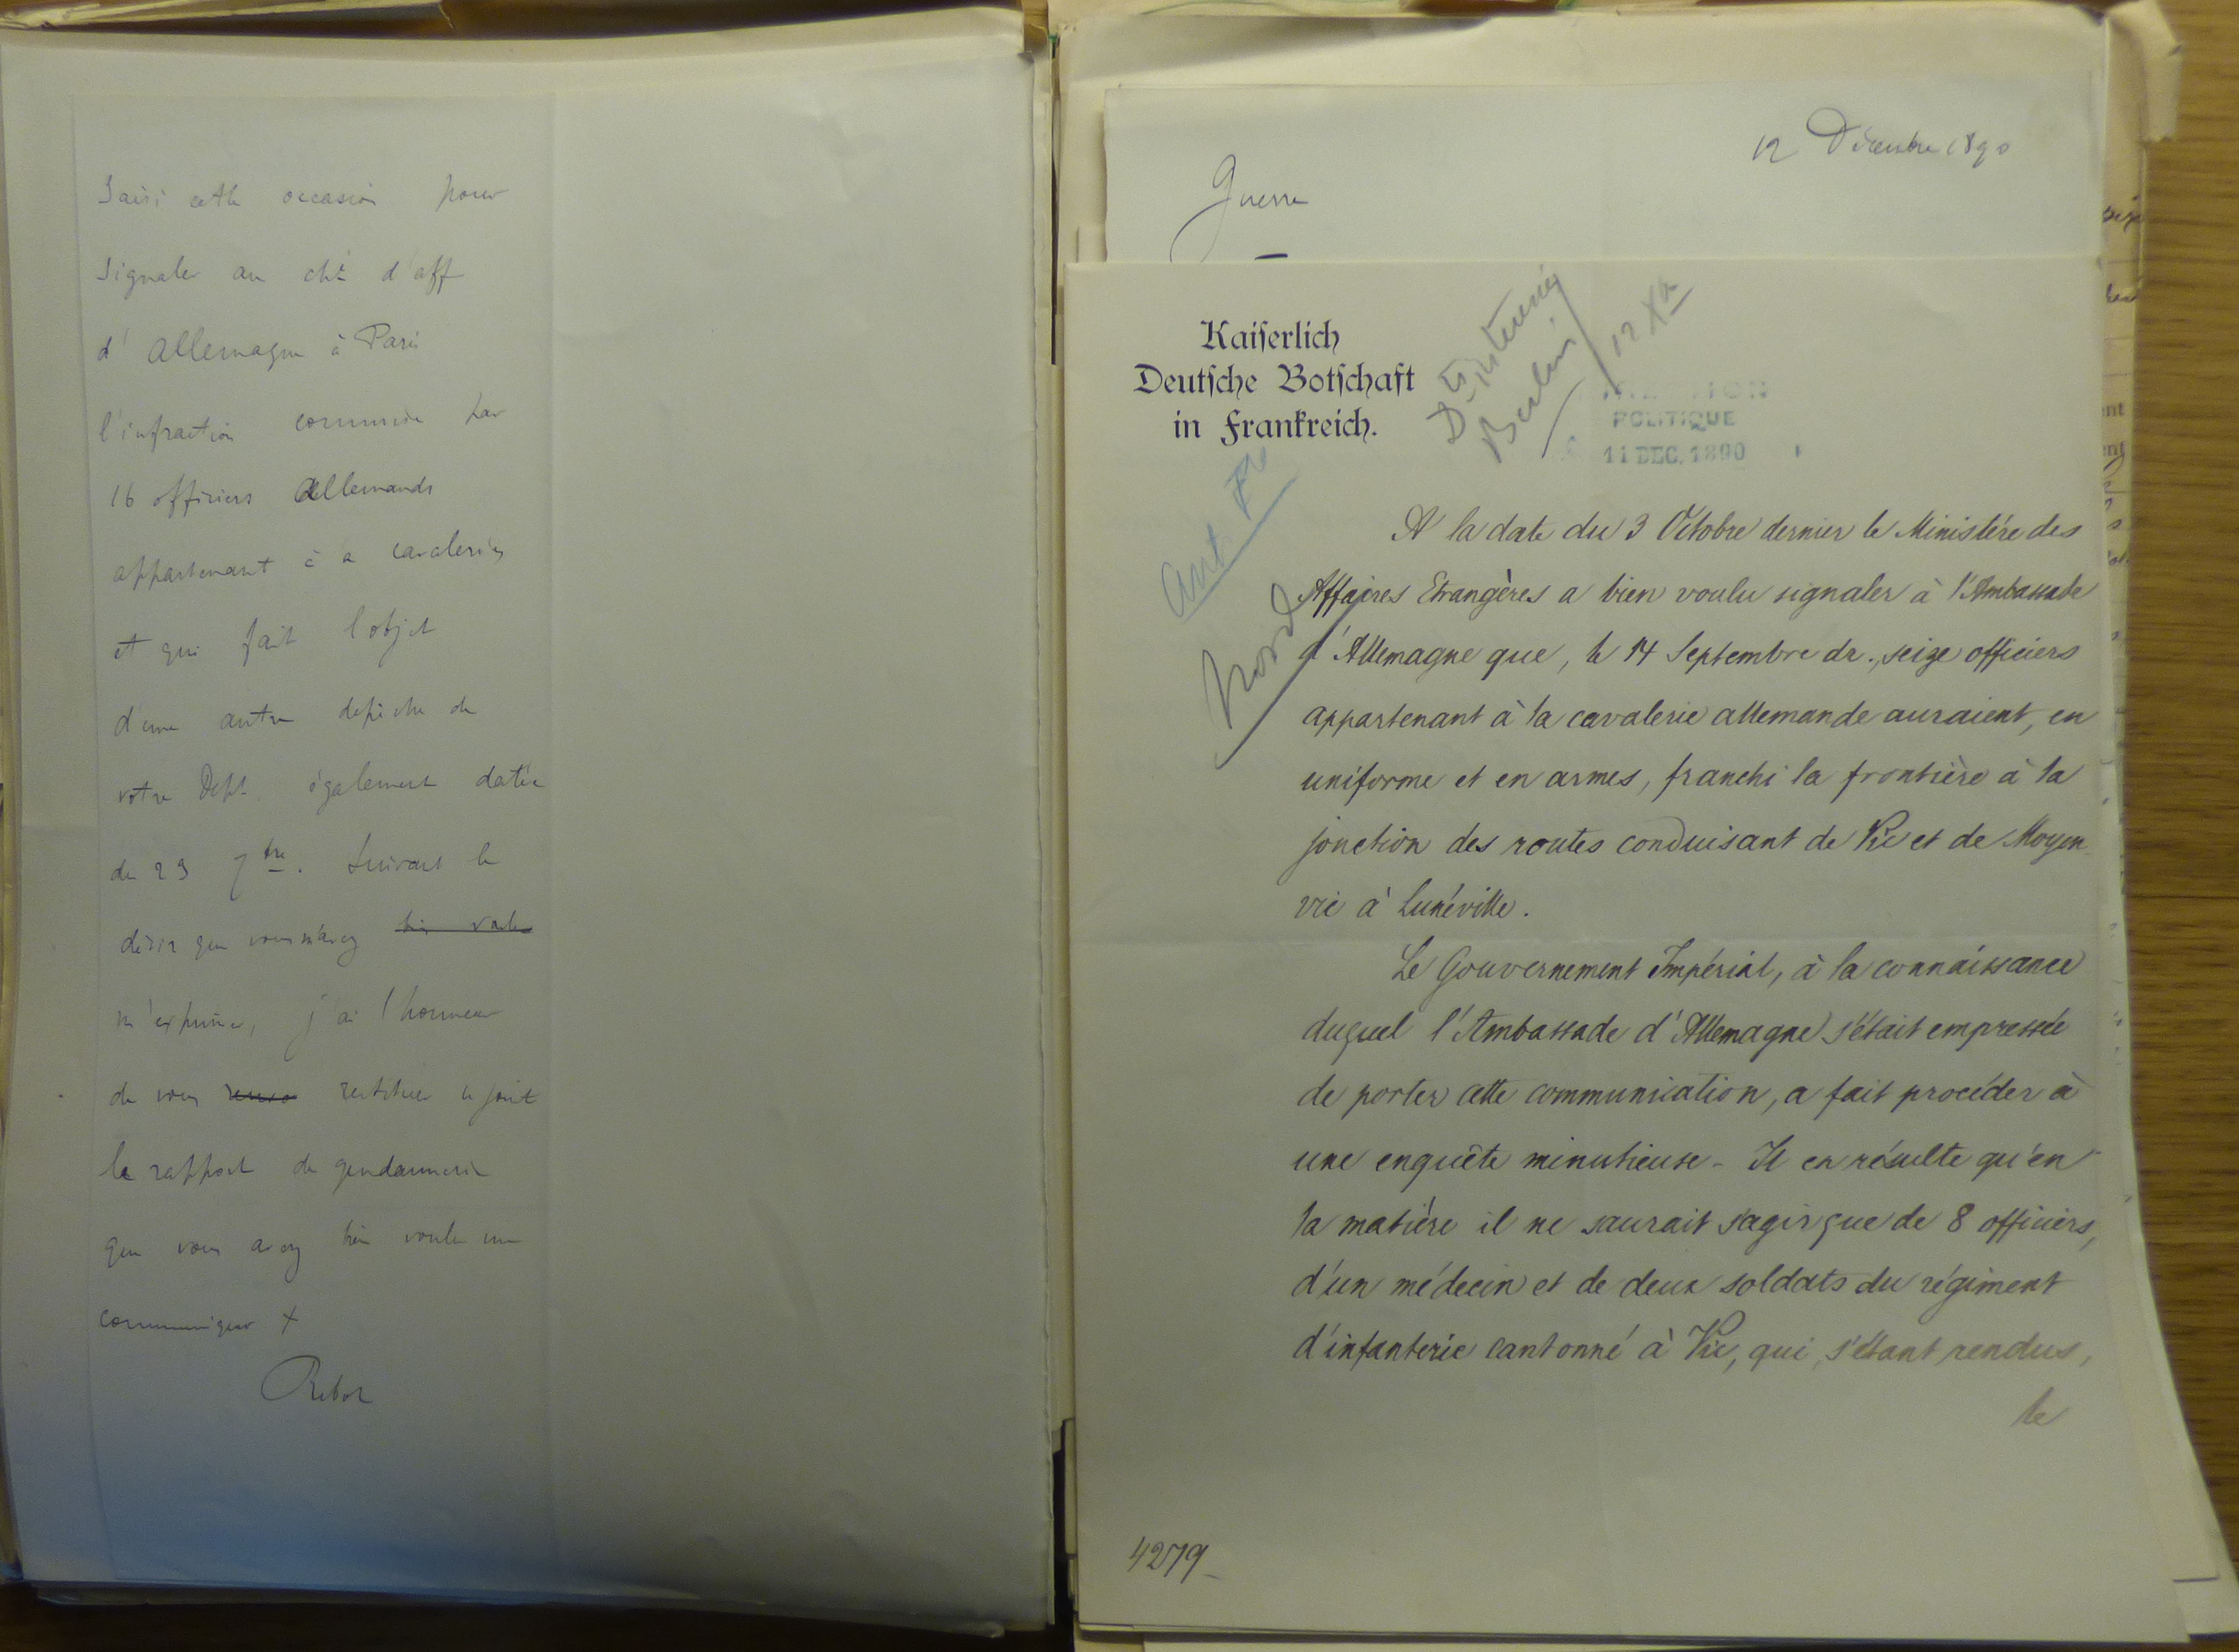 saisi cette occasion pour
signaler au ché d'aff
d'Allemagne à Paris
l'infraction commise par
16 officiers Allemands
appartenant à la cavalerie
et qui fait l'objet
d'une autre dépêche de
votre Dépt également datée
du 29 7bre. Suivant le
désir que vous m'avez bien voulu
m'exprimer, j'ai l'honneur
de vous restituer ci joint
le rapport de gendarmerie
que vous avez bien voulu me
communiquer +
Ribot
12 Décembre 1890
Guerre
Kaiserlich
Deutsche Botschaft
in Frankreich.
Guerre
Berlin
12 Xbre
POLITIQUE
11 DEC. 1890
Nord
A la date du 3 Octobre dernier le Ministère des
Affaires Etrangères a bien voulu signaler à l'Ambassade
d'Allemagne que, le 14 Septembre dr., seize officiers
appartenant à la cavalerie allemande auraient, en
uniforme et en armes, franchi la frontière à la
jonction des routes conduisant de Vic et de Moyen-
vic à Lunéville.
Le Gouvernement Impérial, à la connaissance
duquel l'Ambassade d'Allemagne s'était empressée
de porter cette communication, a fait procéder à
une enquête minutieuse - Il en résulte qu'en
la matière il ne saurait s'agir que de 8 officiers,
d'un médecin et de deux soldats du régiment
d'infanterie cantonné à Vic, qui, s'étant rendus,
le
4279